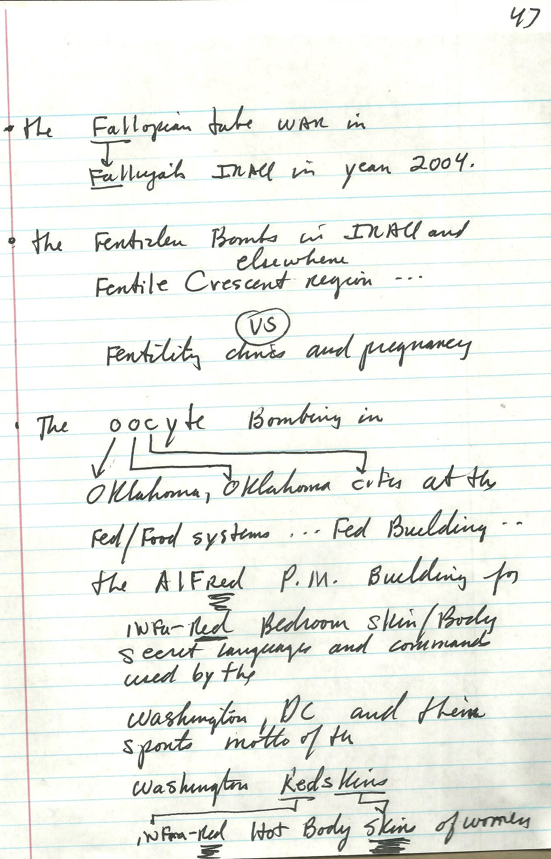 47
• the Fallopian tube WAR in
Fallujah IRAQ in year 2004.
• the Fertizler Bombs in IRAQ and
elsewhere
Fertile Crescent region ...
VS
Fertility clinics and pregnancy
• The oocyte Bombing in
Oklahoma, Oklahoma cities at the
Fed/Food systems ... Fed Building ..
the AlFred P.M. Building for
INFra-Red Bedroom skin/Body
secret languages and command
used by the
Washington, DC and their
sports motto of th
Washington Redskins
INFra-Red Hot Body Skins of women